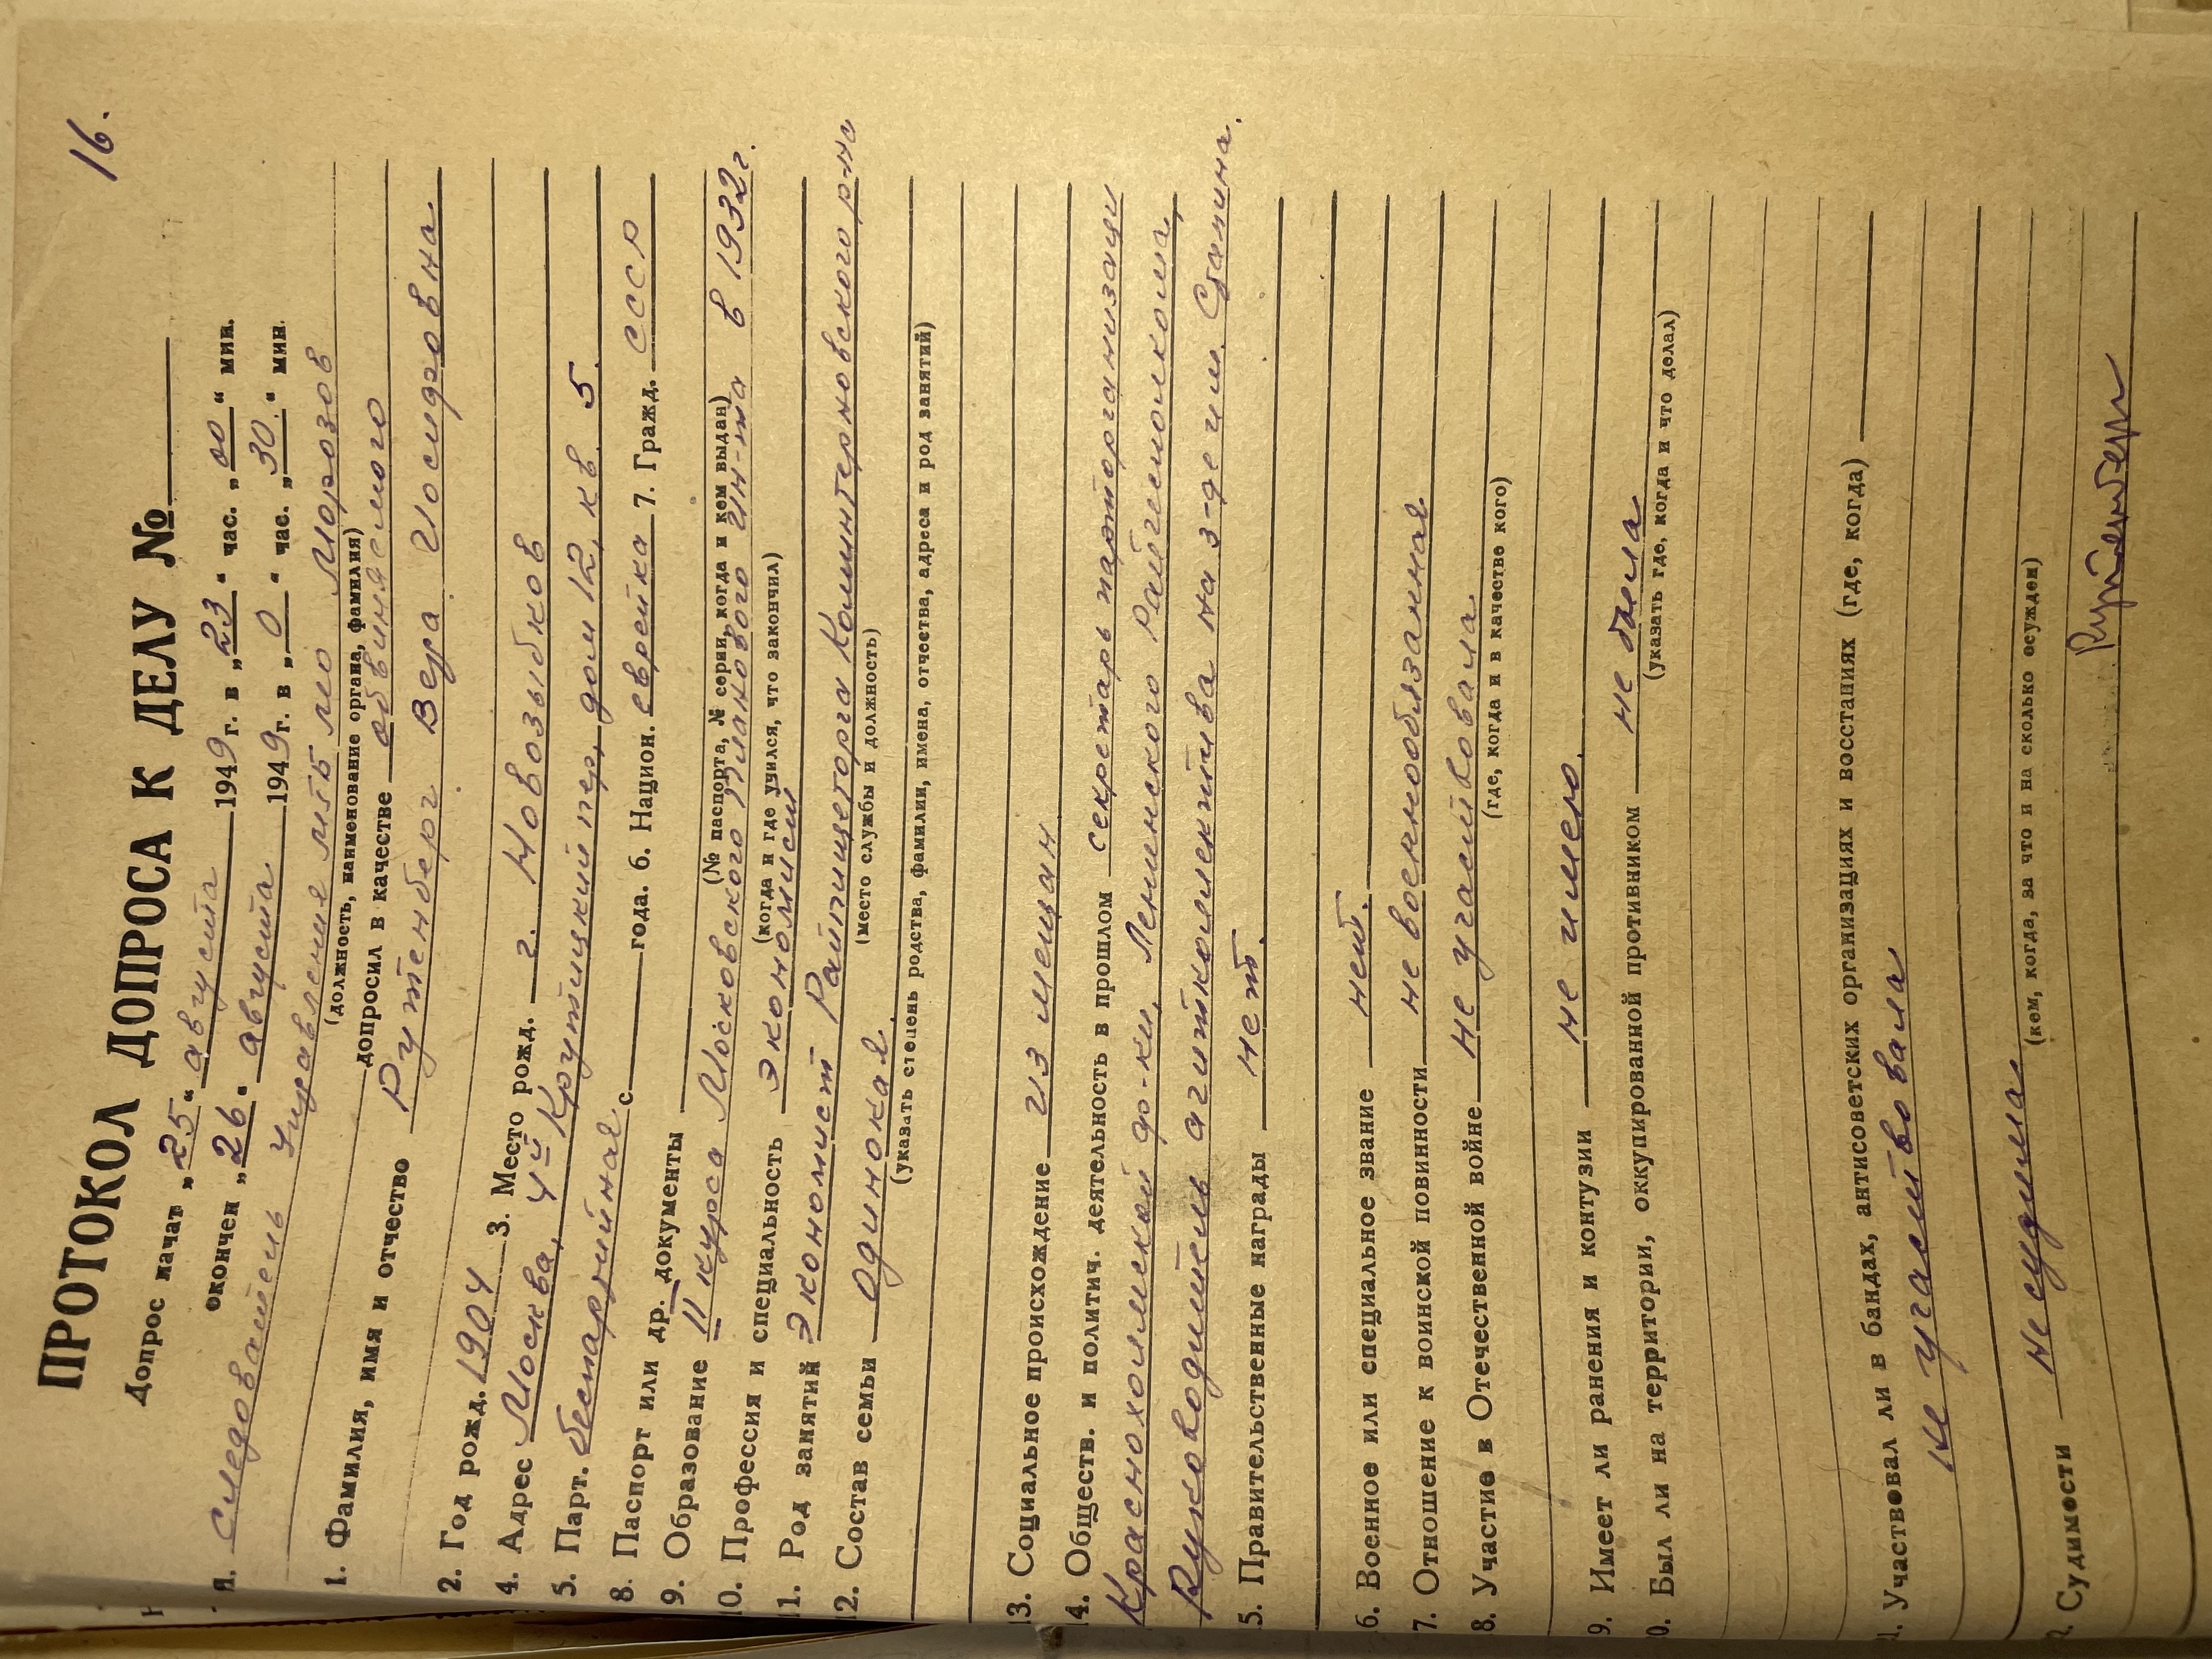 16.
ПРОТОКОЛ ДОПРОСА К ДЕЛУ №
Допрос начат „25“ августа 1949 г. в „23“ час. „00“ мин.
окончен „26“ августа 1949 г. в „0“ час. „30“ мин.
Я. Следователь Управления МГБ МО Морозов
(должность, наименование органа, фамилия)
допросил в качестве обвиняемого
1. Фамилия, имя и отчество Рутенберг Вера Иосифовна
2. Год рожд. 1904 3. Место рожд. г. Новозыбков
4. Адрес Москва, 4й Крутицкий пер, дом 12, кв. 5.
5. Парт. беспартийная с года. 6. Национ. еврейка 7. Гражд. СССР
8. Паспорт или др. документы
(№ паспорта, № серии, когда и кем выдан)
9. Образование II курса Московского Планового ин-та в 1932г.
(когда и где учился, что закончил)
10. Профессия и специальность экономист
11. Род занятий Экономист Райпищеторга Коминтерновского р-на
(место службы и должность)
12. Состав семьи одинокая.
(указать степень родства, фамилии, имена, отчества, адреса и род занятий)
13. Социальное происхождение из мещан
14. Обществ. и политич. деятельность в прошлом секретарь парторганизации
Краснохолмской ф-ки, Ленинского Райжилотдела,
Руководитель агитколлектива на з-де им. Сталина.
5. Правительственные награды нет.
6. Военное или специальное звание нет.
7. Отношение к воинской повинности не военнообязанная
8. Участие в Отечественной войне не участвовала.
(где, когда и в качестве кого)
9. Имеет ли ранения и контузии не имею.
0. Был ли на территории, оккупированной противником не была
(указать где, когда и что делал)
1. Участвовал ли в бандах, антисоветских организациях и восстаниях (где, когда)
не участвовала
2. Судимости не судима
(кем, когда, за что и на сколько осужден)
Рутенберг